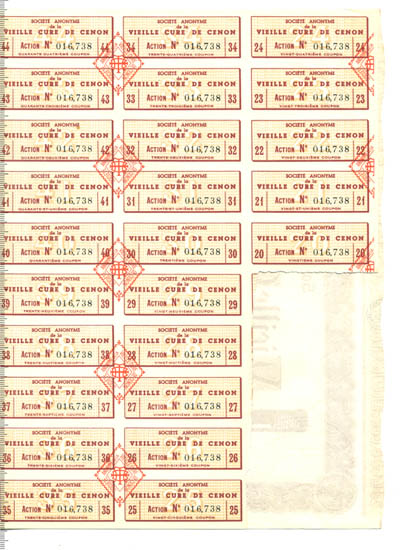 SOCIÉTÉ ANONYME
de la
VIEILLE CURE DE CENON
44 ACTION N° 016,738 44
QUARANTE-QUATRIÈME COUPON
SOCIÉTÉ ANONYME
de la
VIEILLE CURE DE CENON
34 ACTION N° 016,738 34
TRENTE-QUATRIÈME COUPON
SOCIÉTÉ ANONYME
de la
VIEILLE CURE DE CENON
24 ACTION N° 016,738 24
VINGT-QUATRIÈME COUPON
SOCIÉTÉ ANONYME
de la
VIEILLE CURE DE CENON
43 ACTION N° 016,738 43
QUARANTE-TROISIÈME COUPON
SOCIÉTÉ ANONYME
de la
VIEILLE CURE DE CENON
33 ACTION N° 016,738 33
TRENTE-TROISIÈME COUPON
SOCIÉTÉ ANONYME
de la
VIEILLE CURE DE CENON
23 ACTION N° 016,738 23
VINGT-TROISIÈME COUPON
SOCIÉTÉ ANONYME
de la
VIEILLE CURE DE CENON
42 ACTION N° 016,738 42
QUARANTE-DEUXIÈME COUPON
SOCIÉTÉ ANONYME
de la
VIEILLE CURE DE CENON
32 ACTION N° 016,738 32
TRENTE-DEUXIÈME COUPON
SOCIÉTÉ ANONYME
de la
VIEILLE CURE DE CENON
22 ACTION N° 016,738 22
VINGT-DEUXIÈME COUPON
SOCIÉTÉ ANONYME
de la
VIEILLE CURE DE CENON
41 ACTION N° 016,738 41
QUARANTE-ET-UNIÈME COUPON
SOCIÉTÉ ANONYME
de la
VIEILLE CURE DE CENON
31 ACTION N° 016,738 31
TRENTE-ET-UNIÈME COUPON
SOCIÉTÉ ANONYME
de la
VIEILLE CURE DE CENON
21 ACTION N° 016,738 21
VINGT-ET-UNIÈME COUPON
SOCIÉTÉ ANONYME
de la
VIEILLE CURE DE CENON
40 ACTION N° 016,738 40
QUARANTIÈME COUPON
SOCIÉTÉ ANONYME
de la
VIEILLE CURE DE CENON
30 ACTION N° 016,738 30
TRENTIÈME COUPON
SOCIÉTÉ ANONYME
de la
VIEILLE CURE DE CENON
20 ACTION N° 016,738 20
VINGTIÈME COUPON
SOCIÉTÉ ANONYME
de la
VIEILLE CURE DE CENON
39 ACTION N° 016,738 39
TRENTE-NEUVIÈME COUPON
SOCIÉTÉ ANONYME
de la
VIEILLE CURE DE CENON
29 ACTION N° 016,738 29
VINGT-NEUVIÈME COUPON
SOCIÉTÉ ANONYME
de la
VIEILLE CURE DE CENON
38 ACTION N° 016,738 38
TRENTE-HUITIÈME COUPON
SOCIÉTÉ ANONYME
de la
VIEILLE CURE DE CENON
28 ACTION N° 016,738 28
VINGT-HUITIÈME COUPON
SOCIÉTÉ ANONYME
de la
VIEILLE CURE DE CENON
37 ACTION N° 016,738 37
TRENTE-SEPTIÈME COUPON
SOCIÉTÉ ANONYME
de la
VIEILLE CURE DE CENON
27 ACTION N° 016,738 27
VINGT-SEPTIÈME COUPON
SOCIÉTÉ ANONYME
de la
VIEILLE CURE DE CENON
36 ACTION N° 016,738 36
TRENTE-SIXIÈME COUPON
SOCIÉTÉ ANONYME
de la
VIEILLE CURE DE CENON
26 ACTION N° 016,738 26
VINGT-SIXIÈME COUPON
SOCIÉTÉ ANONYME
de la
VIEILLE CURE DE CENON
35 ACTION N° 016,738 35
TRENTE-CINQUIÈME COUPON
SOCIÉTÉ ANONYME
de la
VIEILLE CURE DE CENON
25 ACTION N° 016,738 25
VINGT-CINQUIÈME COUPON